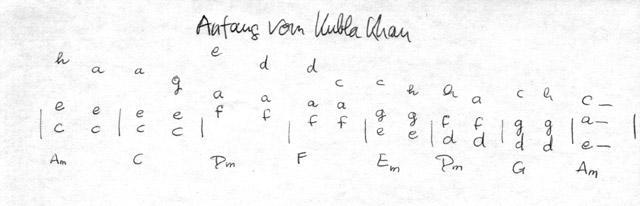 Anfang vom Kubla Khan
e
h a a g d d c c h h a c h c —
e e e e a a a a g g f f g g a —
| c c | c c | f f | f f | e e | d d | d d | e — |
Am C Dm F Em Dm G Am